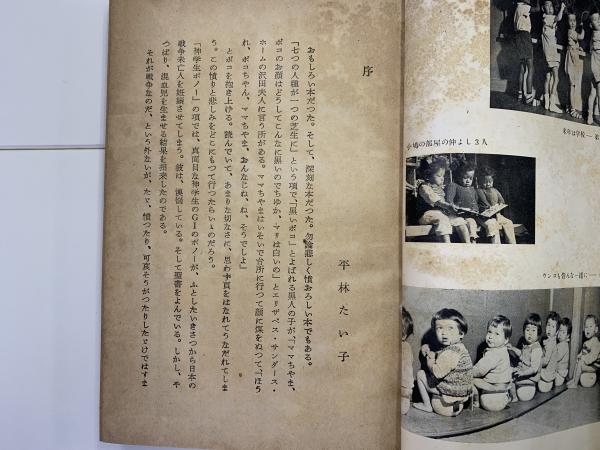 序
平林たい子
おもしろい本だつた。そして、深刻な本だつた。勿論悲しく憤おろしい本でもある。
「七つの人種が一つの芝生に」という項で、「黒いポコ」とよばれる黒人の子が、「ママちやま、
ポコのお顔はどうしてこんなに黒いのでちゆか、マリは白いの」とエリザベス・サンダース・
ホームの沢田夫人に言う所がある。ママちやまはいそいで台所に行つて顔に煤をぬつて、「ほう
れ、ポコちやん、ママちやま、おんなじね、ね、そうでしよ」
とポコを抱き上げる。読んでいて、あまりな切なさに、思わず頁をはなれてうなだれてしま
う。この憤りと悲しみをどこにもつて行つたらいゝのだろう。
「神学生ボノー」の項では、真面目な神学生のGIのボノーが、ふとしたいきさつから日本の
戦争未亡人を妊娠させてしまう。彼は、懊悩している。そして聖書をよんでいる。しかし、や
つぱり、混血児を生ませる結果を招来したのである。
それが戦争なのだ、という外ないが、たゞ、憤つたり、可哀そうがつたりしたゞけではすま
来年は学校──
鳩の部屋の仲よし3人
ウンコも皆んな一緒に──